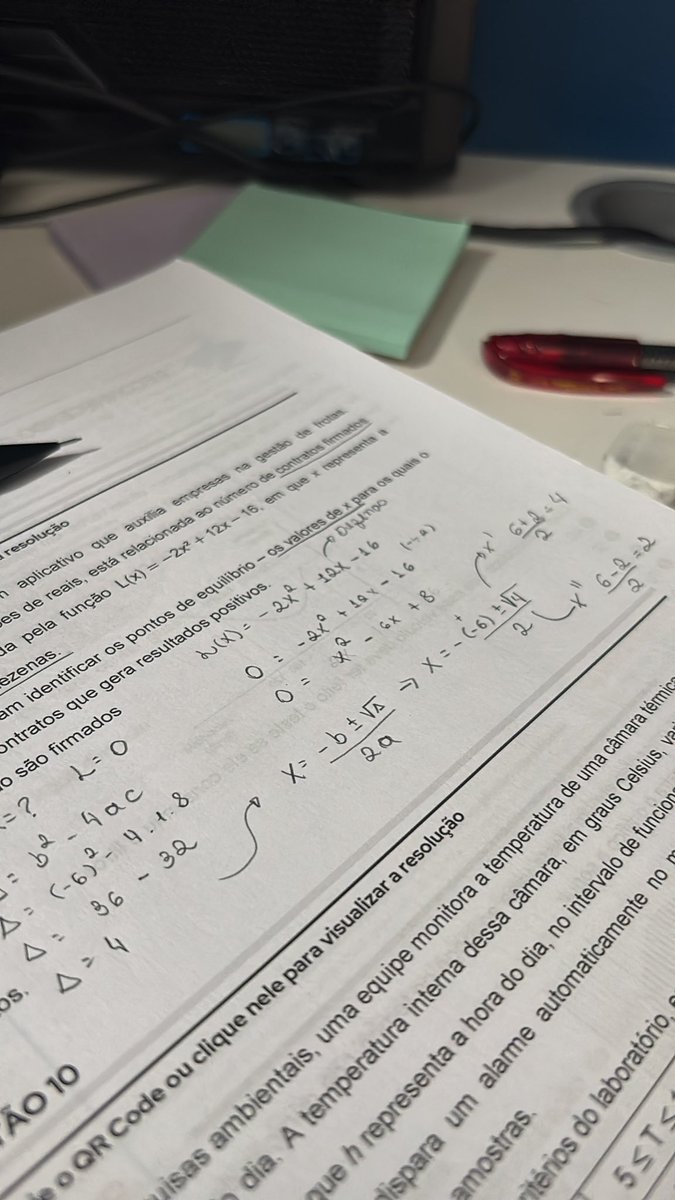 a resolução
aplicativo que auxilia empresas na gestão de frotas.
de reais, está relacionada ao número de contratos firmados
da pela função L(x) = −2x² + 12x − 16, em que x representa a
ezenas.
am identificar os pontos de equilíbrio – os valores de x para os quais o
ontratos que gera resultados positivos.
o são firmados
→ Dezena
L(x) = -2x² + 12x - 16
0 = -2x² + 12x - 16
0 = x² - 6x + 8
= ? L = 0
= b² - 4ac
Δ = (-6)² - 4.1.8
Δ = 36 - 32
Δ = 4
os.
x = -b ± √Δ / 2a → x = -(-6) ± √4 / 2
x' 6+2/2 = 4
x'' 6-2/2 = 2
TÃO 10
e o QR Code ou clique nele para visualizar a resolução
uisas ambientais, uma equipe monitora a temperatura de uma câmara térmic
dia. A temperatura interna dessa câmara, em graus Celsius, va
que h representa a hora do dia, no intervalo de funcion
dispara um alarme automaticamente no m
amostras.
itérios do laboratório,
5 ≤ T ≤